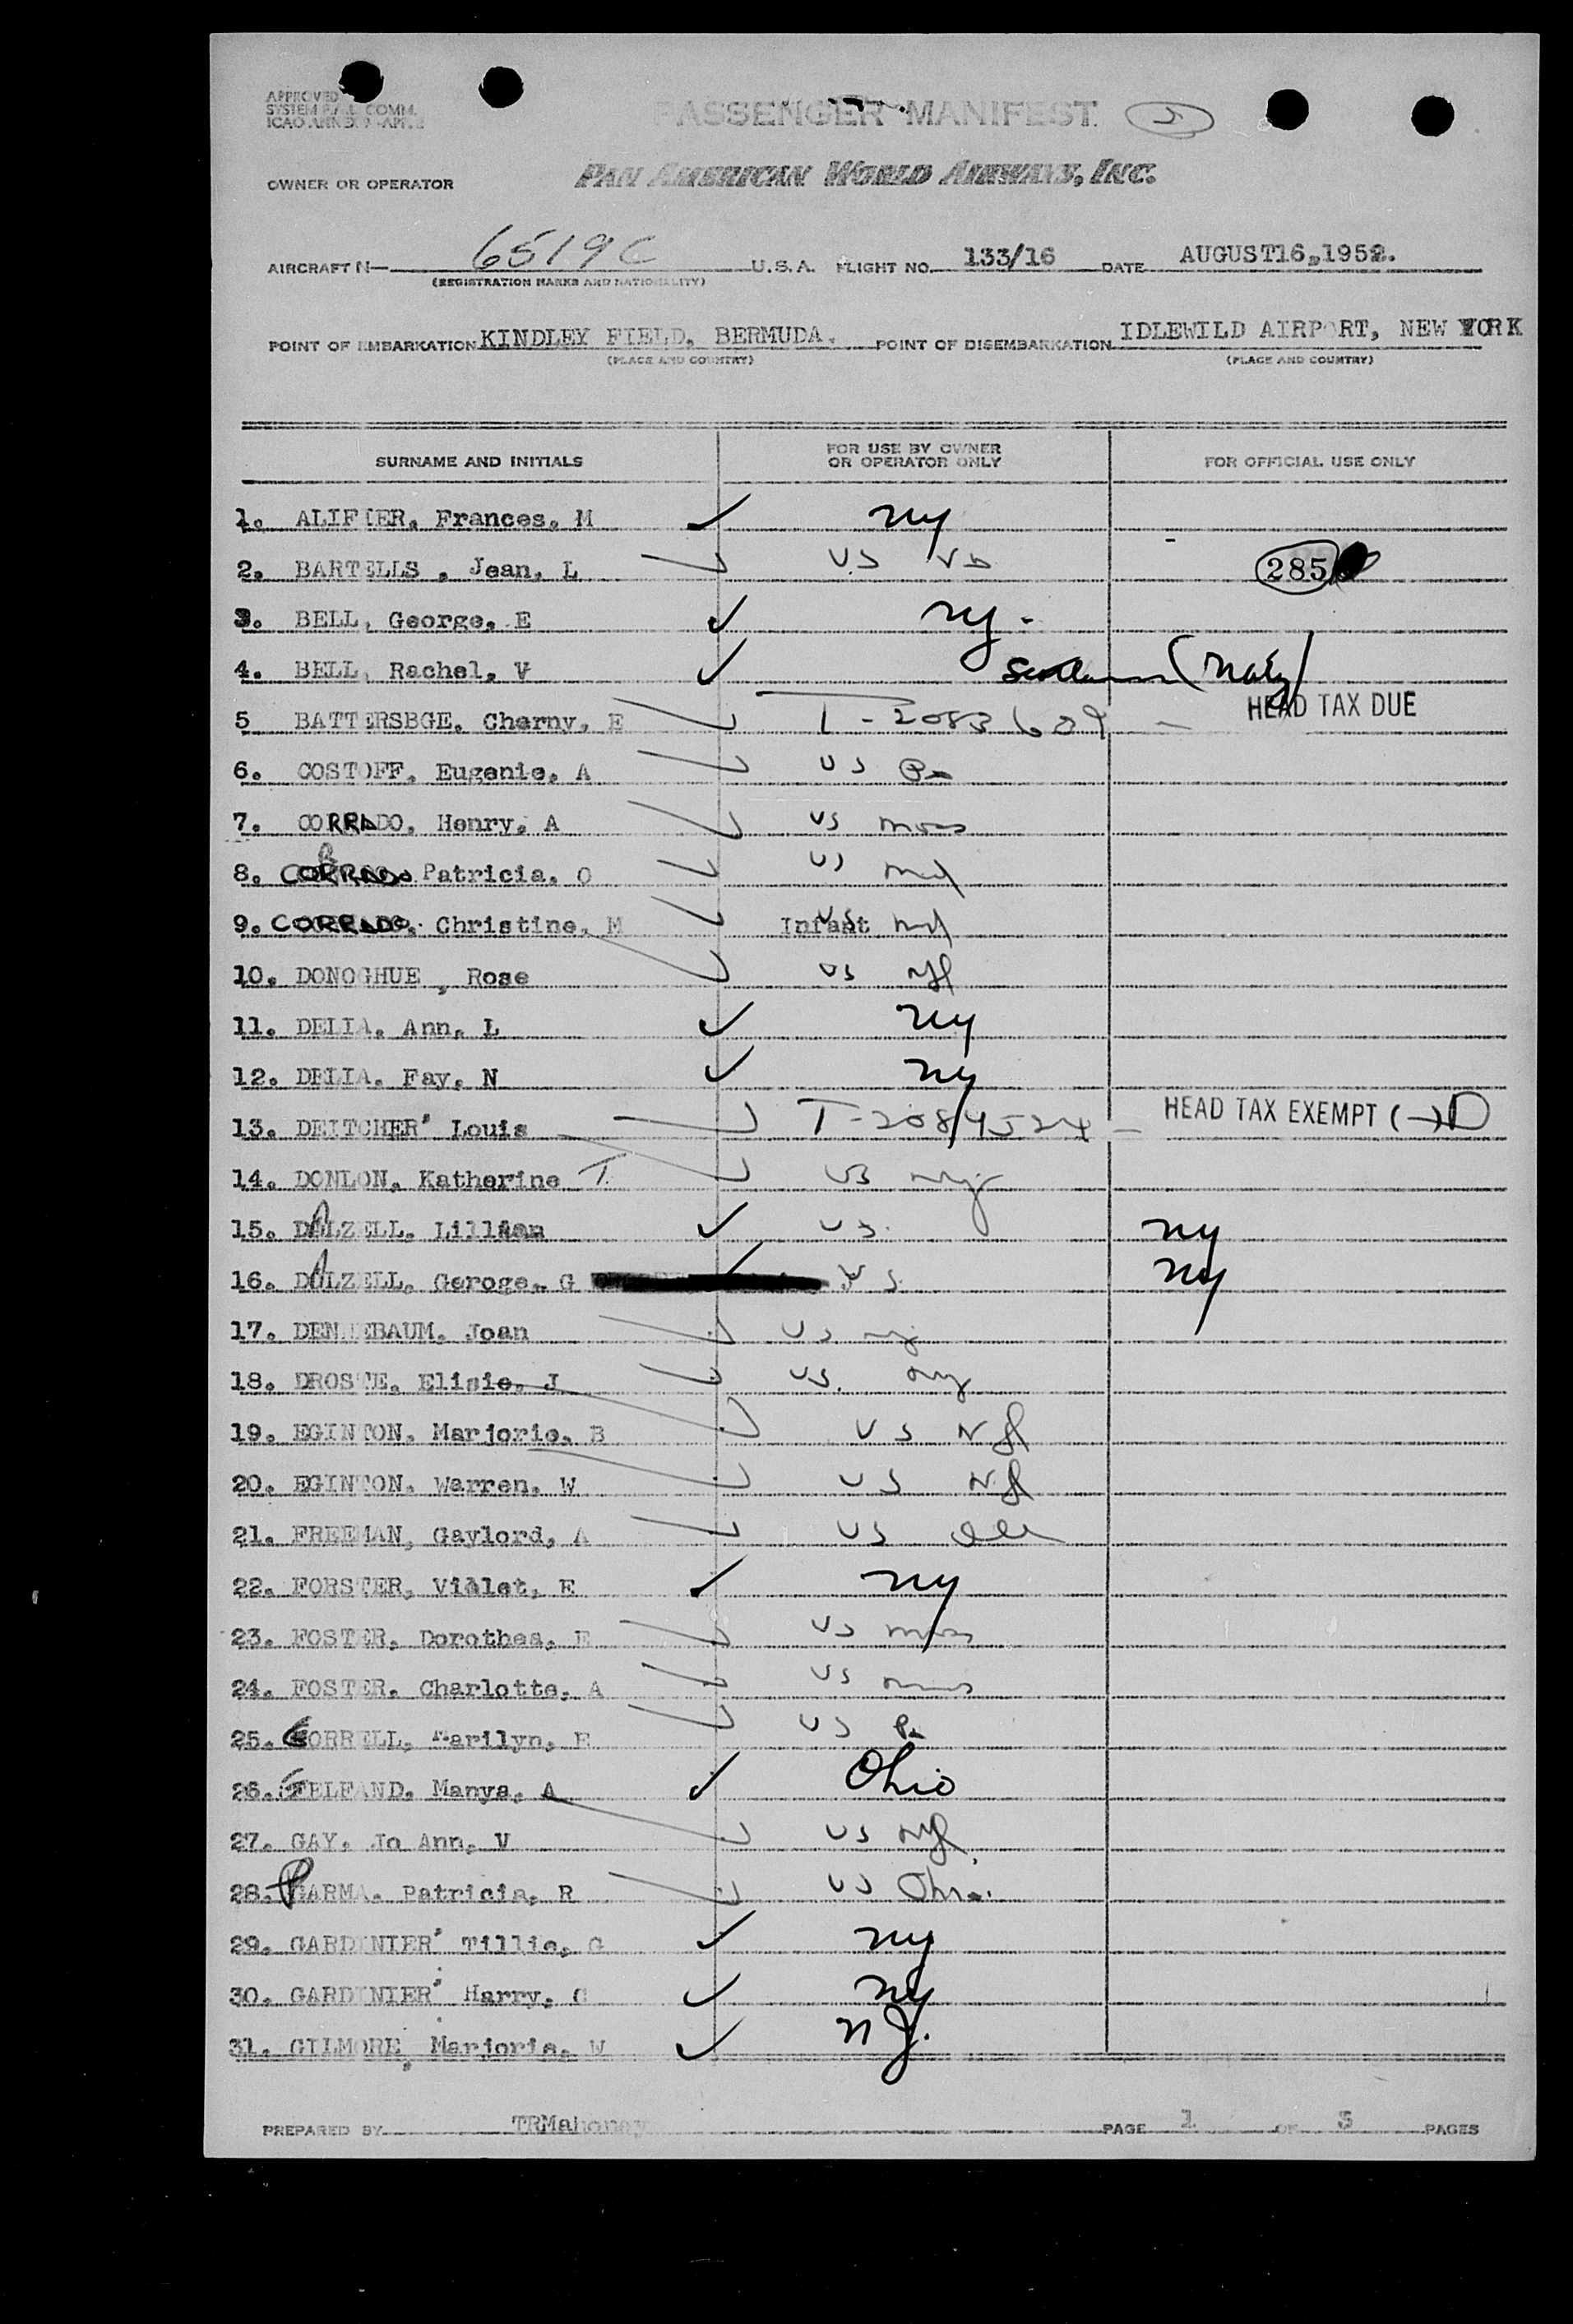 APPROVED
SYSTEM F.A.L. COMM.
PASSENGER MANIFEST
OWNER OR OPERATOR PAN AMERICAN WORLD AIRWAYS, INC.
AIRCRAFT N— 6519C U.S.A. FLIGHT NO. 133/16 DATE AUGUST 16, 1952.
(REGISTRATION MARKS AND NATIONALITY)
POINT OF EMBARKATION KINDLEY FIELD, BERMUDA. POINT OF DISEMBARKATION IDLEWILD AIRPORT, NEW YORK
(PLACE AND COUNTRY) (PLACE AND COUNTRY)
SURNAME AND INITIALS FOR USE BY OWNER OR OPERATOR ONLY FOR OFFICIAL USE ONLY
1. ALIFIER, Frances, M ny
2. BARTELLS , Jean, L US 285
3. BELL, George, E ny.
4. BELL, Rachel, V
5 BATTERSBGE, Cherny, E T-2083609 — HEAD TAX DUE
6. COSTOFF, Eugenie, A US Pa
7. CORRADO, Henry, A US mass
8. CORRADO Patricia, O US md
9. CORRADO, Christine, M Infant US md
10. DONOGHUE , Rose US
11. DELIA, Ann, L ny
12. DELIA, Fay, N ny
13. DEITCHER' Louis T-2084524 — HEAD TAX EXEMPT (-) D
14. DONLON, Katherine T. US ny
15. DALZELL, Lillian US. ny
16. DALZELL, Geroge, G US ny
17. DENNEBAUM, Joan US ny
18. DROSTE, Elisie, J US. ny
19. EGINTON, Marjorie, B US NJ
20. EGINTON, Warren, W US NJ
21. FREEMAN, Gaylord, A US Ill
22. FORSTER, Violet, E ny
23. FOSTER, Dorothea, E US mass
24. FOSTER, Charlotte, A US mass
25. GORRELL, Marilyn, E US Pa
26. GELFAND, Manya, A Ohio
27. GAY, Jo Ann, V US
28. PARMA, Patricia, R US Ohio
29. GARDINIER' Tillie, G ny
30. GARDINIER' Harry, G ny
31. GILMORE, Marjorie, W NJ.
PREPARED BY TRMahoney PAGE 1 OF 3 PAGES